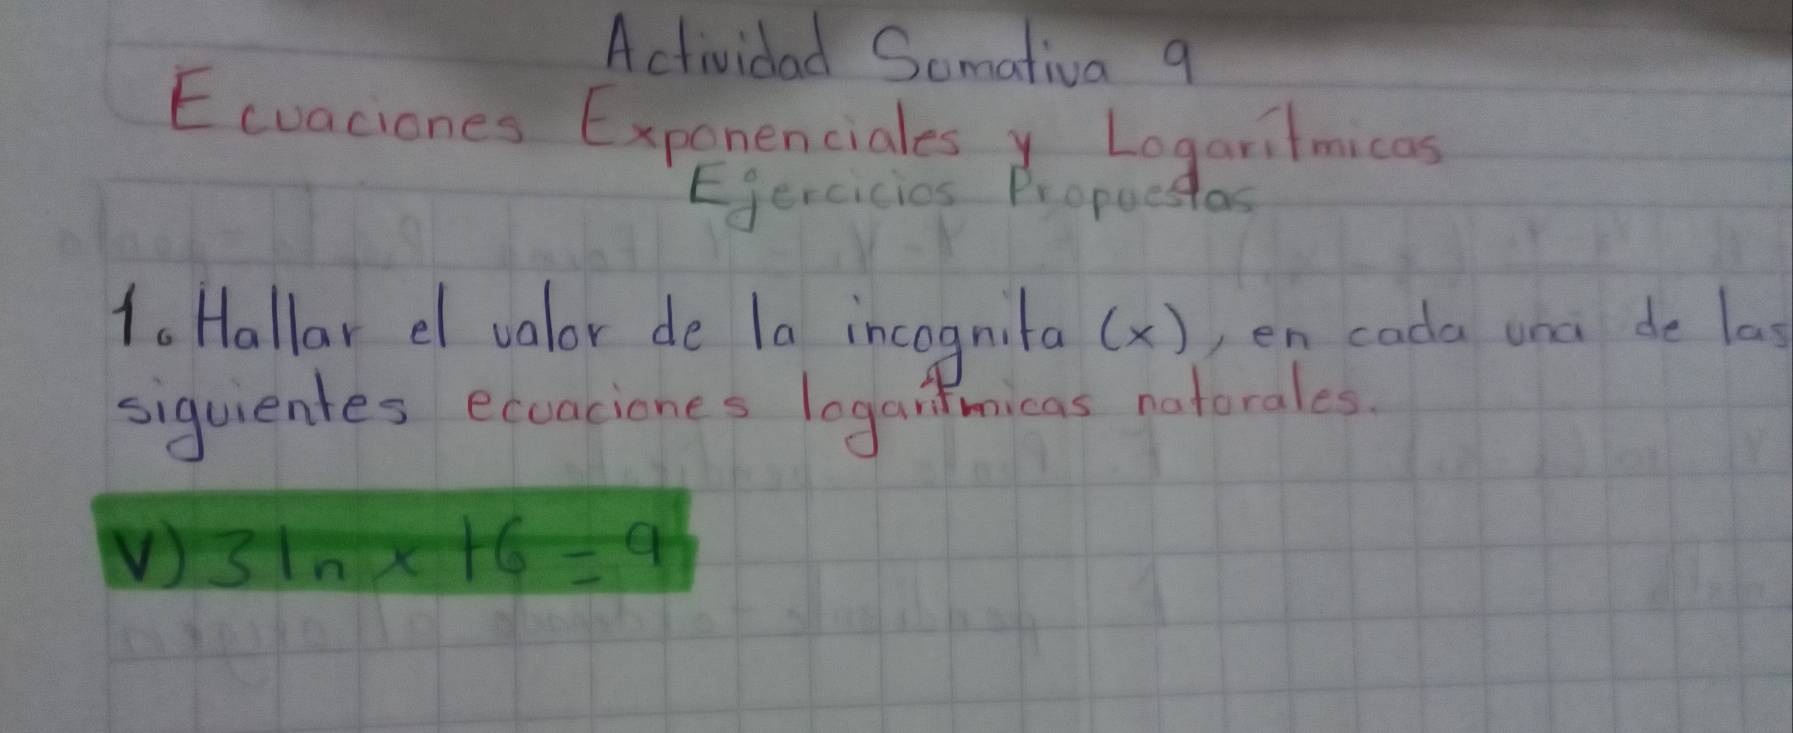 Actividad Sumativa 9
Ecuaciones Exponenciales y Logarítmicas
Ejercicios Propuestos
1. Hallar el valor de la incognita (x), en cada una de las
siguientes ecuaciones logarítmicas naturales.
V) 3 ln x + 6 = 9